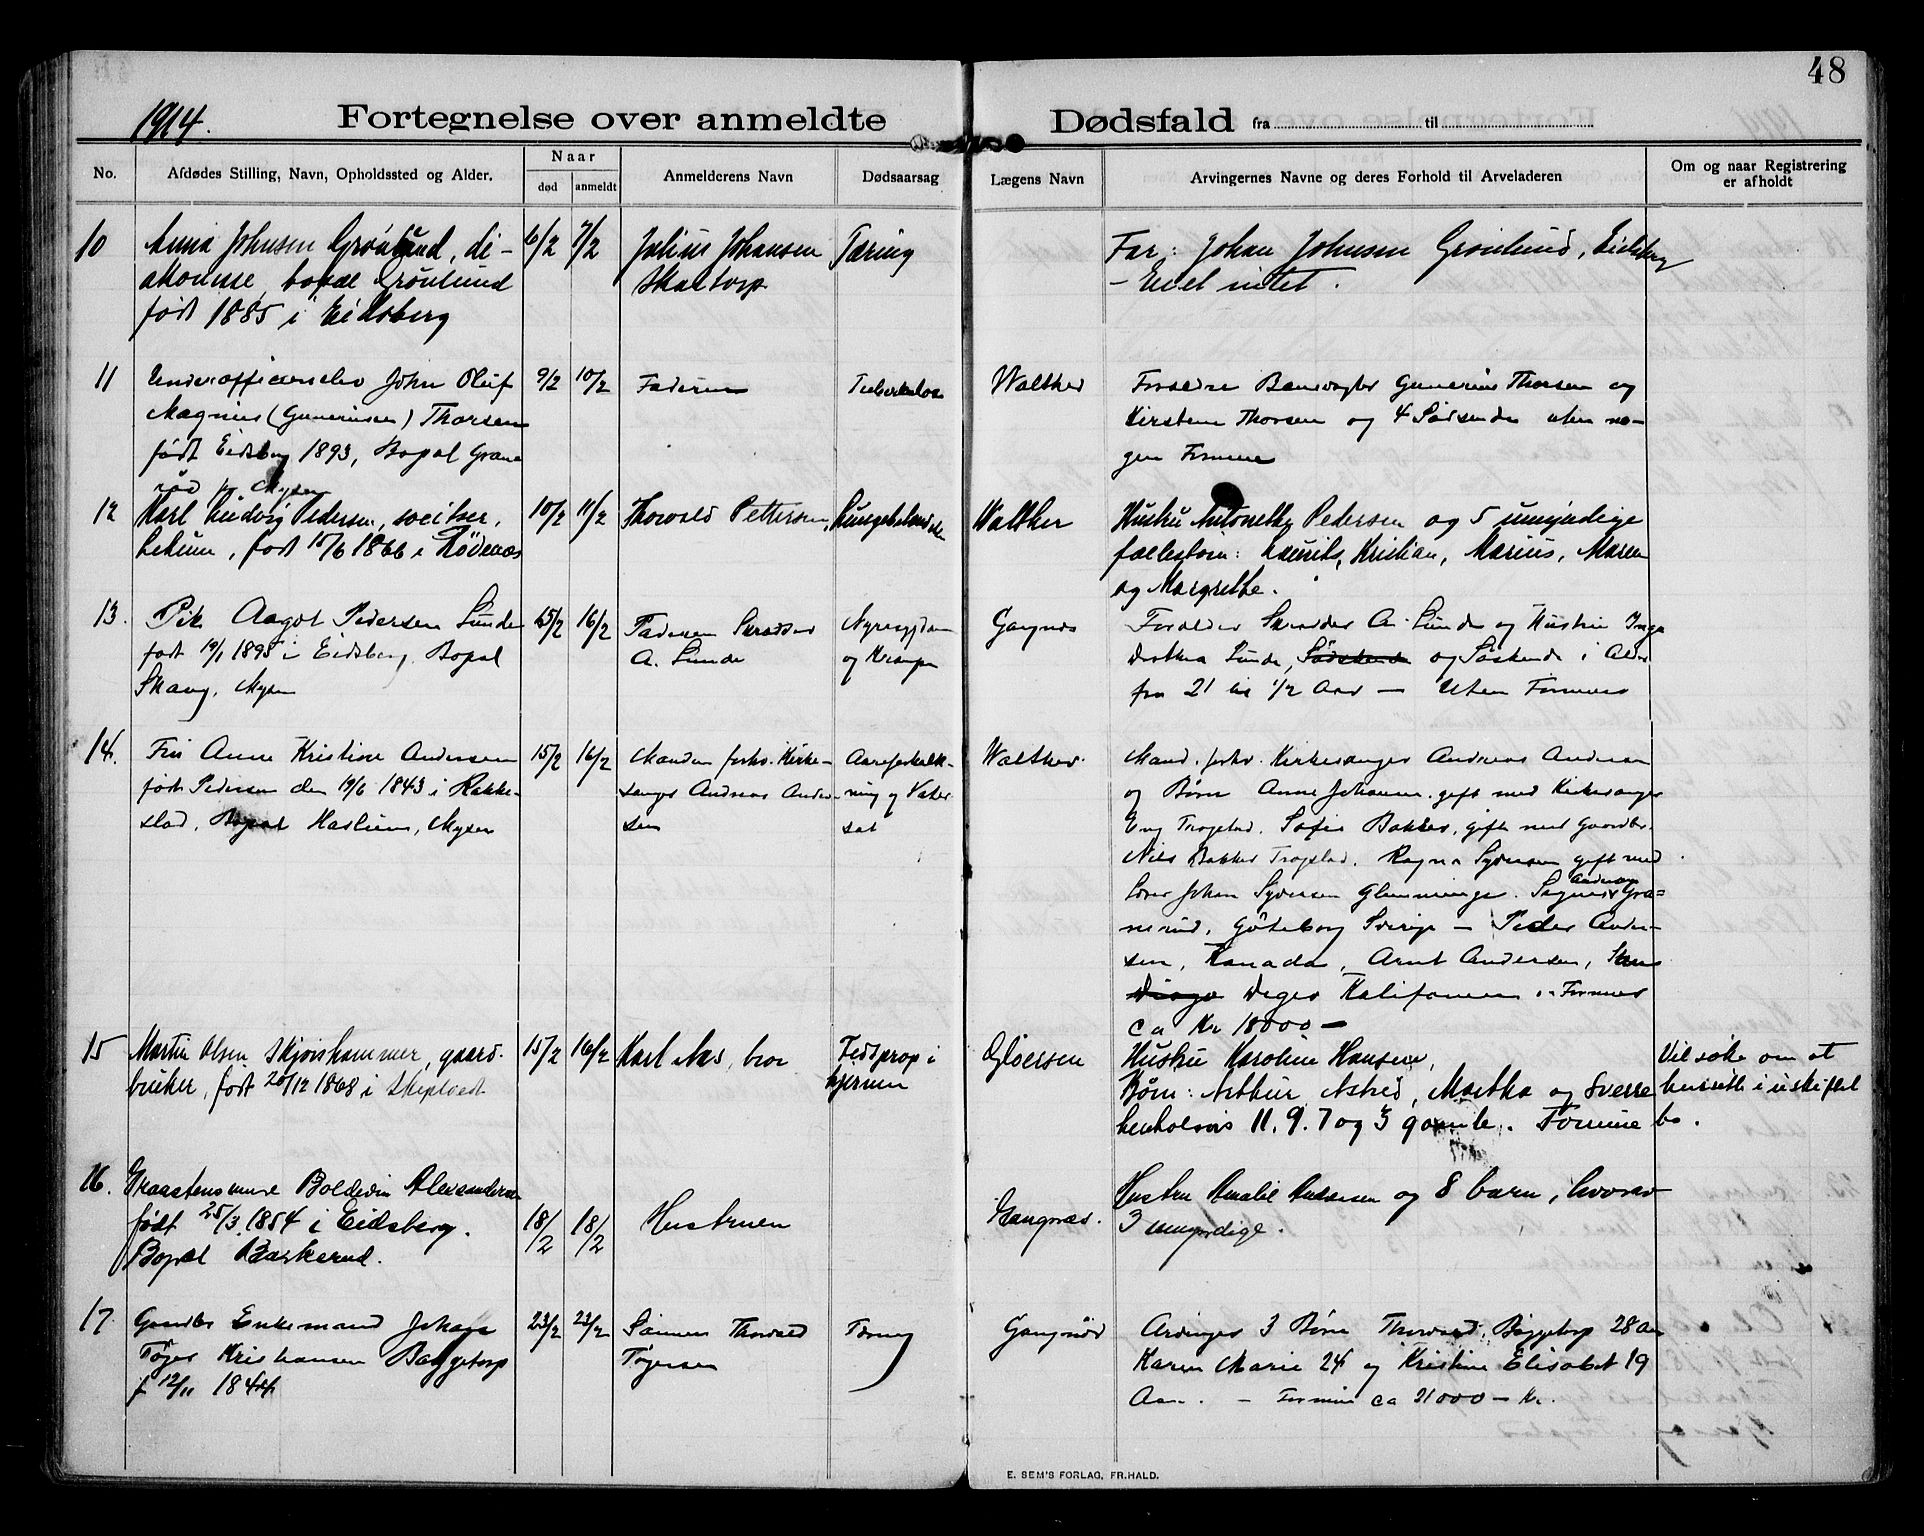 48
1914.
Fortegnelse over anmeldte Dødsfald fra til
No.
Afdødes Stilling, Navn, Opholdssted og Alder.
Naar
død
anmeldt
Anmelderens Navn
Dødsaarsag
Lægens Navn
Arvingernes Navne og deres Forhold til Arveladeren
Om og naar Registrering
er afholdt
10
Anna Johnsen Grønlund, di-
akonisse, bopæl Grønlund
født 1885 i Eidsberg
6/2
7/2
Julius Johansen
Skaltorp
Tæring
Far: Johan Johnsen Grønlund, Eidsberg
- Eiet intet.
11
Underofficerselev John Oluf
Magnus (Guneriusen) Thorsen
født Eidsberg 1893, Bopæl Grane
rud pr Mysen
9/2
10/2
Faderen
Tuberkulose
Walther
Forældre Banevogter Gunerius Thorsen og
Kirstine Thorsen og 4 Sødskende uten no-
gen Formue
12
Karl Ludvig Pedersen, sveitser,
Lekum, født 15/6 1866 i Rødenes
10/2
11/2
Thorvald Pettersen
Lungebetændelse
Walther
Hustru Antonette Pedersen og 5 umyndige
fællesbørn: Laurits, Kristian, Marius, Maren
og Margrethe.
13.
Pike Aagot Pedersen Lunde
født 19/1 1895 i Eidsberg. Bopæl
Skaug, Mysen
15/2
16/2
Faderen Skrædder
A. Lunde
Nyresygdom
og Krampe
Gangnæs
Forælder Skrædder A. Lunde og Hustru Inga
Dorthea Lunde, Sødskende og Søskende i Alder
fra 21 til 1/2 Aar — Uten Formues
14.
Fru Anne Kristine Andersen
født Pedersen den 19/6 1843 i Rakke-
stad, Bopæl Haslum, Mysen
15/2
16/2
Manden forhv. Kirke-
sanger Andreas Ander-
sen
Aareforkalk-
ning og Vater
sot
Walther.
Mand. forhv. Kirkesanger Andreas Andersen
og Børn Anne Johanne. gift med Kirkesanger
Eng Trøgstad. Sofie Bakker, gift med Gaardbr.
Nils Bakker Trøgstad. Ragna Syversen gift med
Lærer Johan Syversen Glemminge. Andreas Gra-
nerud, Göteborg Sverige — Peder Ander-
sen, Kanada, Arnt Andersen, San
Diego Kalifornien - Formue
ca Kr 18000 —
15
Martin Olsen Skjørshammer, gaard-
bruker, født 20/12 1868 i Skiptvedt
15/2
16/2
Karl Aas, bror
Fedtprop i
hjernen
Gløersen
Hustru Karoline Hansen,
Børn: Arthur, Astrid, Martha og Sverre
henholdsvis 11. 9. 7 og 3 gamle. Formue
Vil søke om at
hensitte i uskiftet
bo.
16.
Graastensmurer Boldevin Alexandersen
født 25/3 1854 i Eidsberg.
Bopæl Baskerud.
18/2
18/2
Hustruen
Gangnæs.
Hustru Amalie Andersen og 8 barn, hvorav
3 umyndige.
17.
Gaardbr Enkemand Johan
Tøger Kristiansen Baggetorp
f 12/11 1844
23/2
23/2
Sønnen Thorvald
Tøgersen
Tæring
Gangnæs
Arvinger 3 Børn Thorvald, Baggetorp 28 Aar
Karen Marie 24 og Kristine Elisabet 19
Aar. — Formue ca 21000 — Kr.
E. SEM'S FORLAG, FR.HALD.